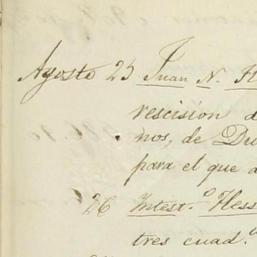 Agosto 25 Juan N. H
rescision d
nos, de Du
para el que a
26 Intest.º Hess
tres cuad.